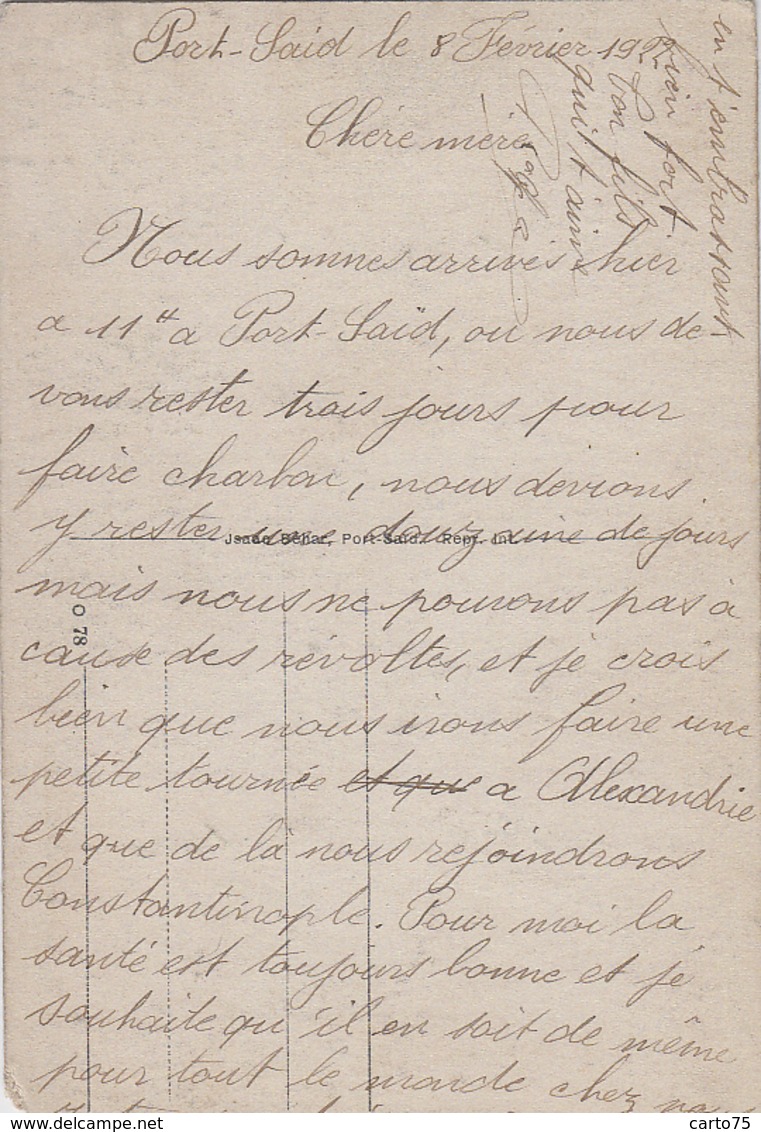 Port-Said le 8 Février 192
Chère mère
Nous sommes arrivés hier
a 11H a Port-Saïd, ou nous de-
vons rester trois jours pour
faire charbon, nous devions
y rester une douzaine de jours
mais nous ne pouvons pas à
cause des révoltes, et je crois
bien que nous irons faire une
petite tournée et que a Alexandrie
et que de là nous rejoindrons
Constantinople. Pour moi la
santé est toujours bonne et je
souhaite qu'il en soit de même
pour tout le monde chez nous
en t'embrassant
bien fort
ton fils
qui t'aime
Isaac Béhar, Port-Said. Repr. Int.
O 78
carto75